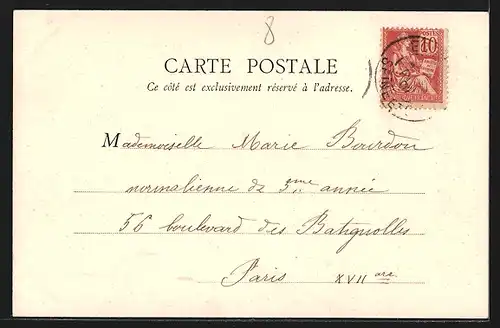 8
POSTES
10
CARTE POSTALE
Ce côté est exclusivement réservé à l'adresse.
Mademoiselle Marie Bourdon
normalienne de 3ème année
56 boulevard des Batignolles
Paris XVII are